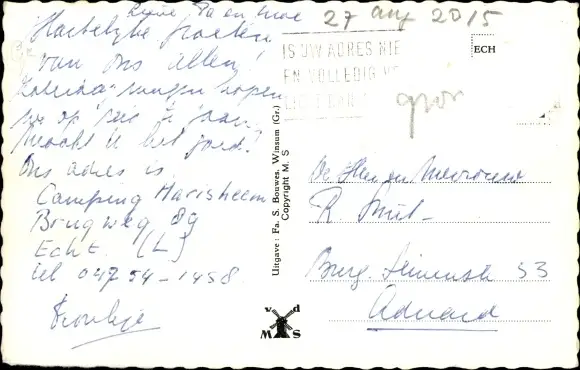 Lieve Pa en Moe
Hartelijke groeten
van ons allen!
hopen
we op reis te gaan,
Maakt U het goed!
Ons adres is
Camping Marisheem
Brugweg 89
Echt. (L)
tel 04754-1458
Froukje
27 aug 2015
IS UW ADRES
EN VOLLEDIG
ECH
gron
Uitgave: Fa. S. Bouwes, Winsum (Gr.)
Copyright M. S
v d
M S
De Heer en Mevrouw
R Smit-
Burg. 53
Aduard